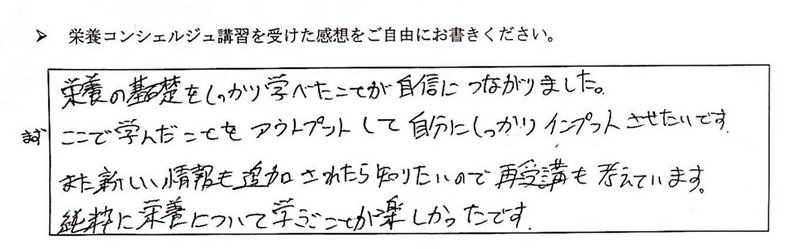 ➤ 栄養コンシェルジュ講習を受けた感想をご自由にお書きください。
栄養の基礎をしっかり学べたことが自信につながりました。
まず ここで学んだことを アウトプットして 自分にしっかり インプットさせたいです
また新しい情報も追加されたら知りたいので 再受講も考えています。
純粋に栄養について学ぶことが楽しかったです